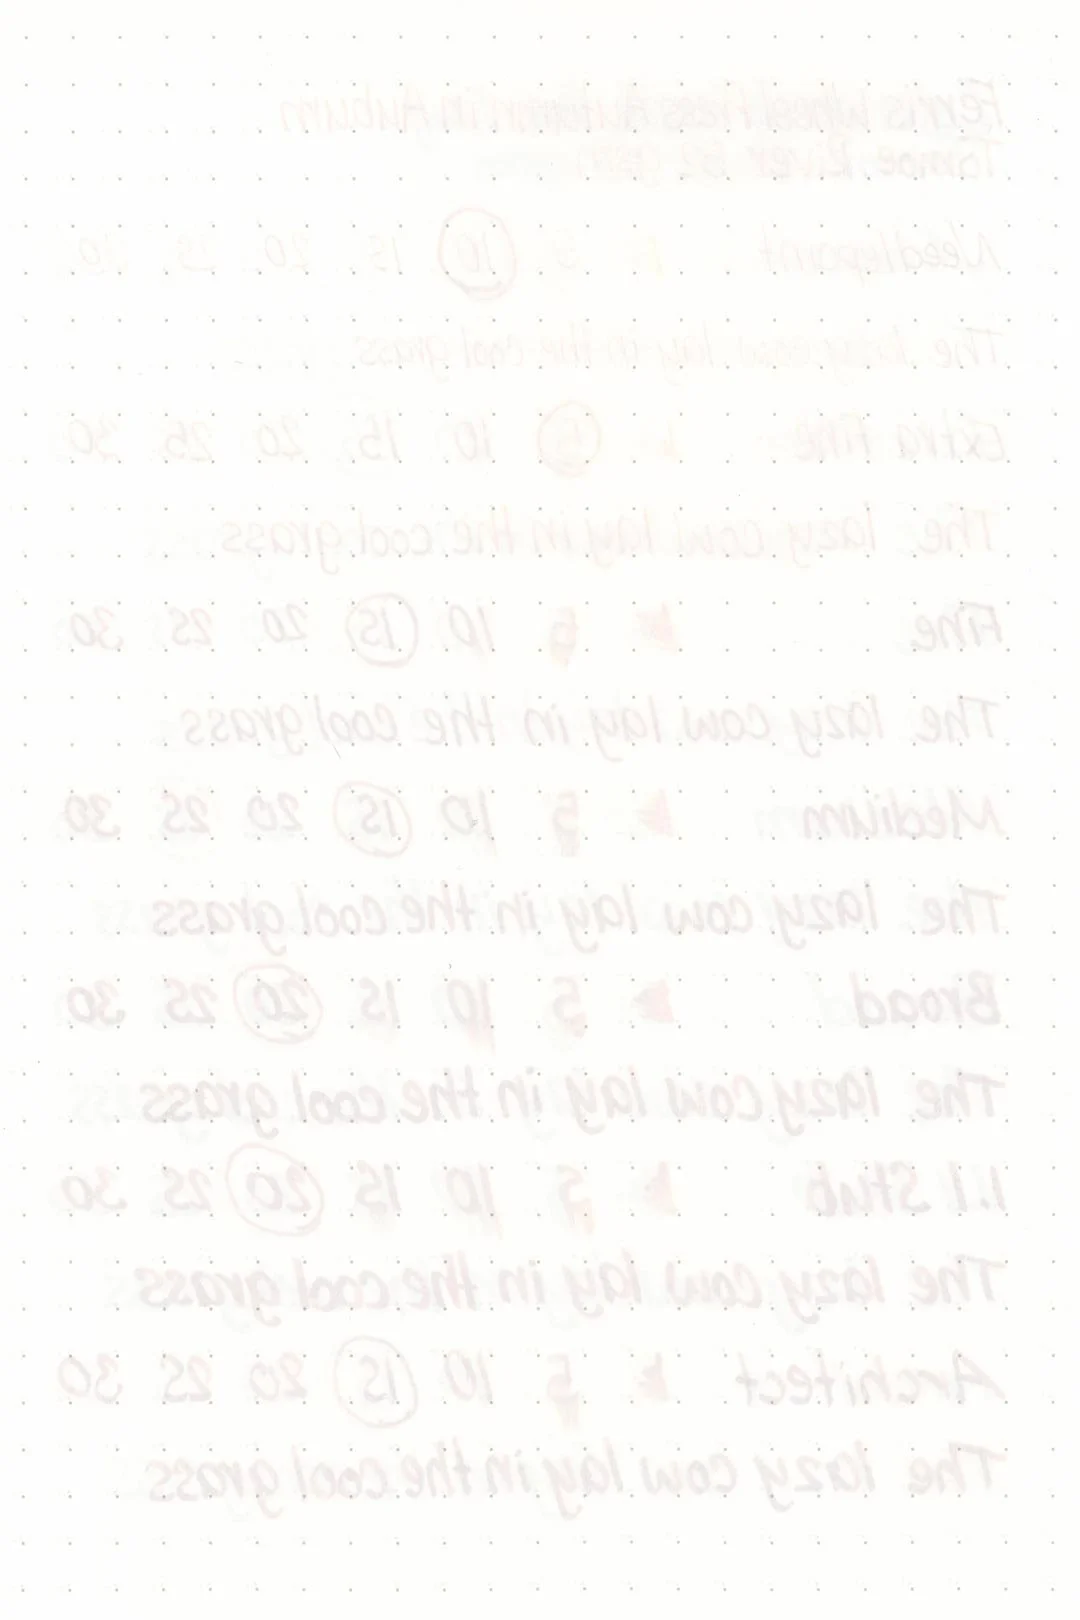 Ferris Wheel Press Autumn in Auburn
Tomoe River 52 gsm
Needlepoint 1 5 10 15 20 25 30
The lazy cow lay in the cool grass
Extra Fine 5 10 15 20 25 30
The lazy cow lay in the cool grass
Fine 5 10 15 20 25 30
The lazy cow lay in the cool grass
Medium 5 10 15 20 25 30
The lazy cow lay in the cool grass
Broad 5 10 15 20 25 30
The lazy cow lay in the cool grass
1.1 Stub 5 10 15 20 25 30
The lazy cow lay in the cool grass
Architect 5 10 15 20 25 30
The lazy cow lay in the cool grass